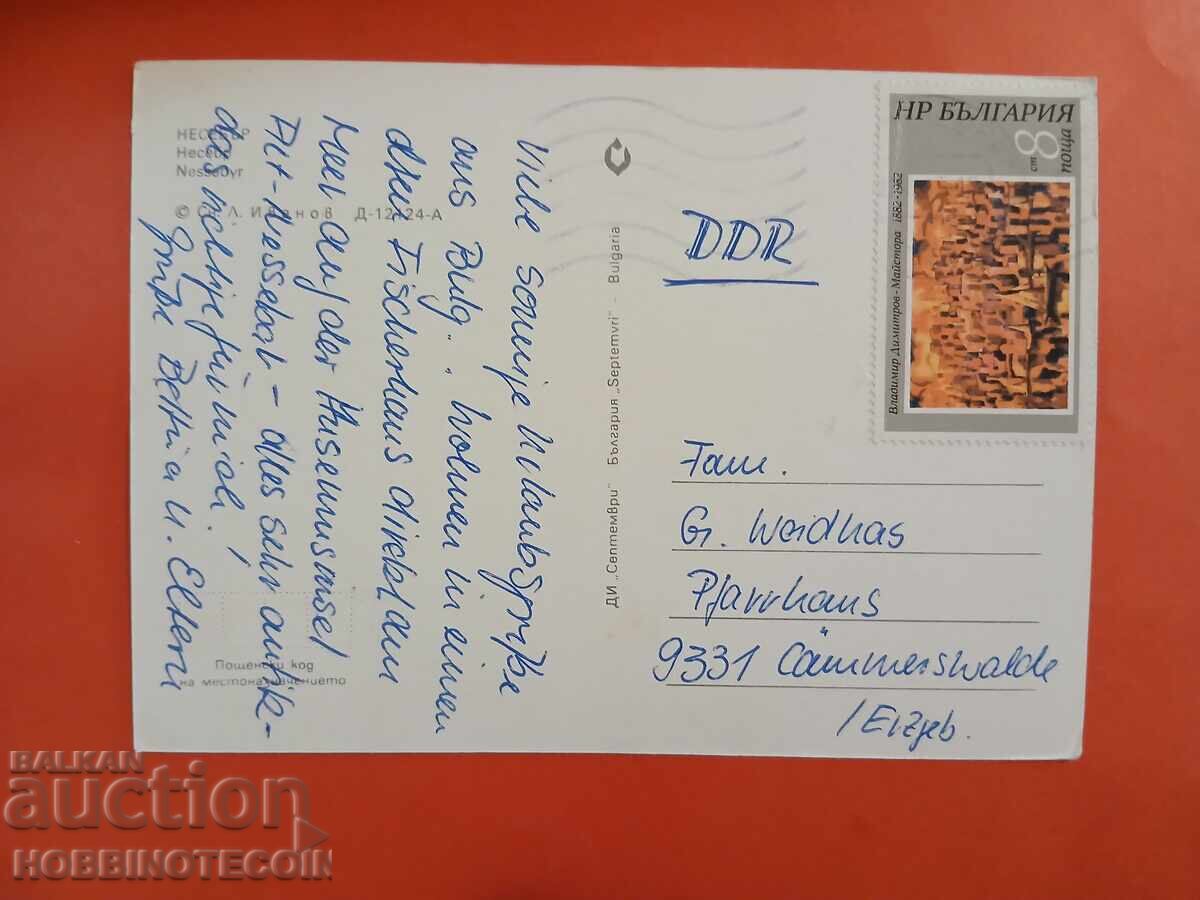 НЕСЕБЪР
Несебр
Nessebyr
© Л. Иванов Д-12124-А
Viele sonnige Urlaubsgrüße
aus Bulg., wohnen in einem
alten Fischerhaus direkt am
Meer auf der Museumsinsel
Alt-Nessebar – alles sehr antik –
das richtige für mich!
Grüße Bettina u. Eltern
Пощенски код
на местоназначението
ДИ „Септември" България „Septemvri" - Bulgaria
НР БЪЛГАРИЯ
8 ст
поща
Владимир Димитров - Майстора 1882-1982
DDR
Fam.
G. Weidhas
Pfarrhaus
9331 Cämmerswalde
/Erzgeb.
BALKAN
auction
HOBBINOTECOIN